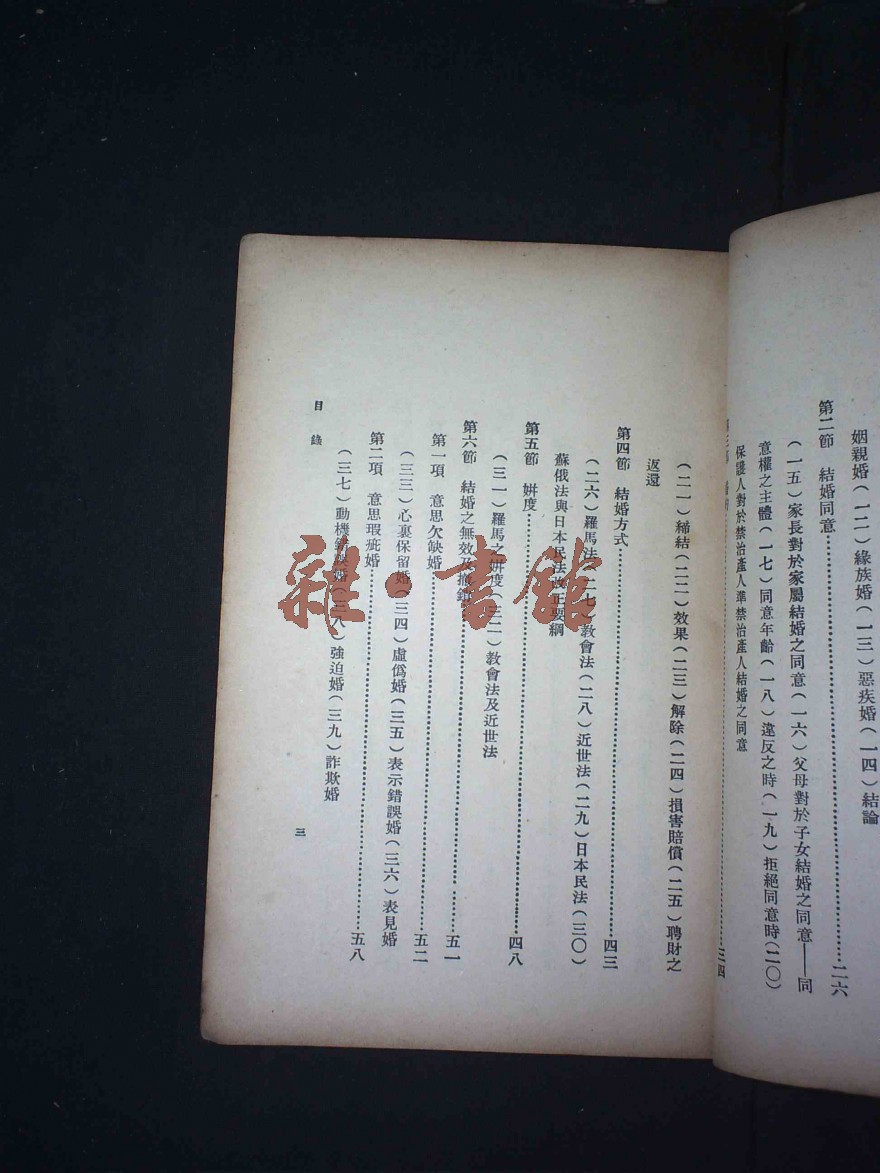 姻親婚(一二)緣族婚(一三)惡疾婚(一四)結論
第二節 結婚同意……二六
(一五)家長對於家屬結婚之同意(一六)父母對於子女結婚之同意——同
意權之主體(一七)同意年齡(一八)違反之時(一九)拒絕同意時(二〇)
保護人對於禁治產人準禁治產人結婚之同意
……三四
(二一)締結(二二)效果(二三)解除(二四)損害賠償(二五)聘財之
返還
第四節 結婚方式……四三
(二六)羅馬法(二七)教會法(二八)近世法(二九)日本民法(三〇)
蘇俄法與日本民法改正要綱
第五節 姘度……四八
(三一)羅馬之姘度(三二)教會法及近世法
第六節 結婚之無效及撤銷……五一
第一項 意思欠缺婚……五二
(三三)心裏保留婚(三四)虛僞婚(三五)表示錯誤婚(三六)表見婚
第二項 意思瑕疵婚……五八
(三七)動機錯誤婚(三八)強迫婚(三九)詐欺婚
目錄
三
雜·書館